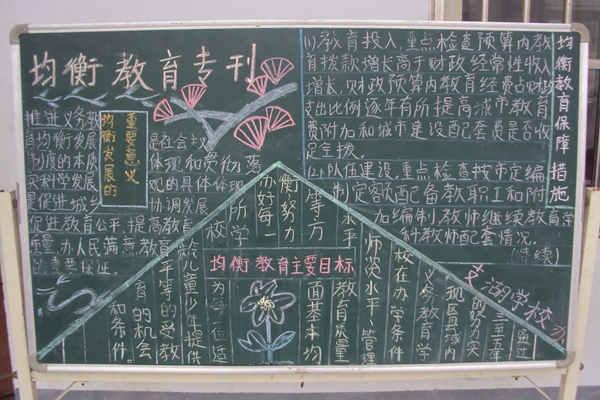 均衡教育专刊
推进义务教
育均衡发展是社会主义
制度的本质体现和贯彻落
实科学发展观的具体体现
是促进城乡协调发展
促进教育公平,提高教育
质量,办人民满意教育
的重要保证。
均衡发展的
重要意义
(1)教育投入,重点检查预算内教
育拨款增长高于财政经常性收入
增长,财政预算内教育经费占财政
支出比例逐年有所提高城市教育
费附加和城市建设配套费是否收
足全拨。
(2)队伍建设,重点检查按市定编
制定额配备教职工和附
加编制,教师继续教育学
科教师配套情况。
(待续)
均衡教育保障措施
支湖学校办
均衡教育主要目标
通过
三至五年
的努力,实
现区域内
义务教育学
校在办学条件
师资水平、管理
水平、教育质量
等方面基本均
衡努力
办好每一
所学
校
为每一位适
龄儿童少年提供
平等的受教
育的机会
和条件。